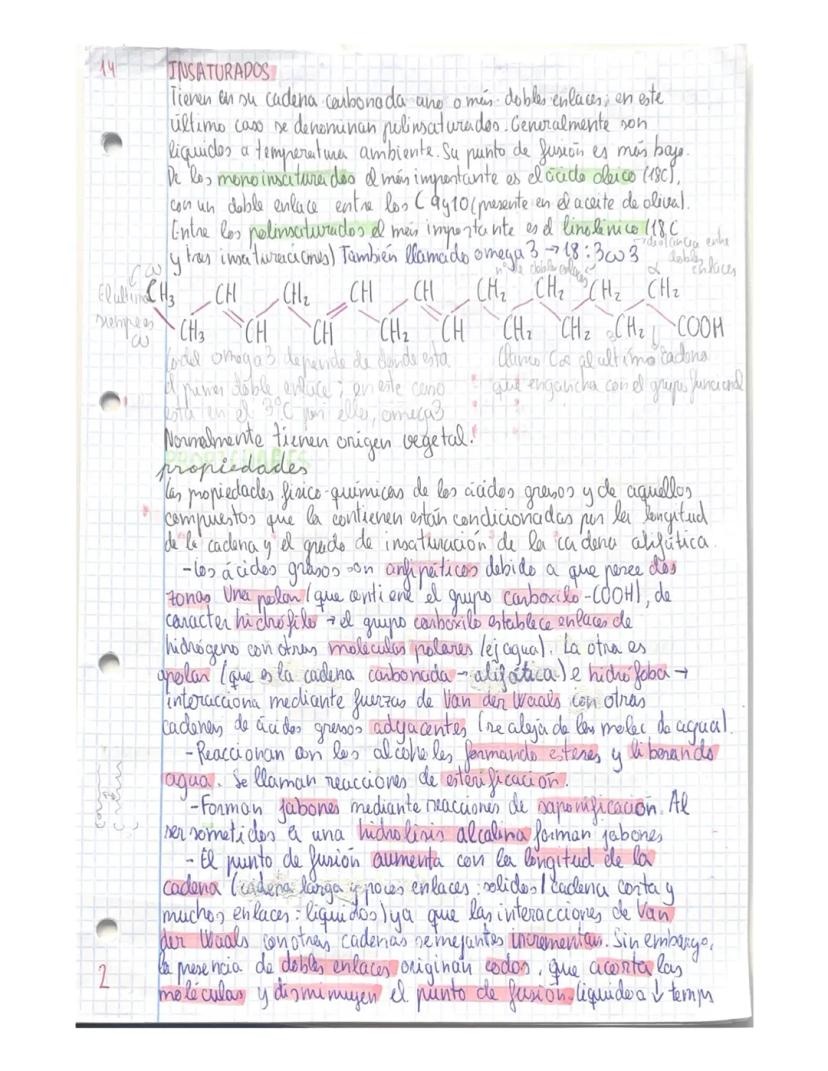 14
INSATURADOS
Tienen en su cadena carbonada uno o más dobles enlaces; en este
último caso se denominan polinsaturados. Generalmente son
líquidos a temperatura ambiente. Su punto de fusión es más bajo.
De los monoinsaturados el más importante es el ácido oleico (18C),
con un doble enlace entre los C 9y10 (presente en el aceite de oliva).
Entre los polinsaturados el más importante es el linolénico (18C
y tres insaturaciones) También llamado omega 3 → 18:3ω3
distancia entre
dobles
enlaces
nº de dobles enlaces
ω
α
CH3 CH CH2 CH CH CH2 CH2 CH2 CH2
El último
siempre es
ω
CH3 CH CH CH2 CH CH2 CH2 CH2 COOH
Lo del omega 3 depende de donde esta
el primer doble enlace; en este caso
esta en el 3ºC por ello, omega3
llamo Cα al ultimo cadena
que engancha con el grupo funcional
Normalmente tienen origen vegetal.
propiedades
Las propiedades físico-químicas de los ácidos grasos y de aquellos
compuestos que la contienen están condicionadas por la longitud
de la cadena y el grado de insaturación de la cadena alifática.
-Los ácidos grasos son anfipáticos debido a que posee dos
zonas Una polar (que contiene el grupo carboxilo -COOH), de
caracter hidrófilo → el grupo carboxilo establece enlaces de
hidrógeno con otras moléculas polares (ej agua). La otra es
apolar (que es la cadena carbonada - alifática) e hidrófoba →
interacciona mediante fuerzas de Van der Waals con otras
cadenas de ácidos grasos adyacentes (se aleja de las molec de agua).
- Reaccionan con los alcoholes formando esteres y liberando
agua. Se llaman reacciones de esterificación.
-Forman jabones mediante reacciones de saponificación. Al
ser sometidos a una hidrolisis alcalina forman jabones
- El punto de fusión aumenta con la longitud de la
cadena (cadena larga y pocos enlaces: solidos / cadena corta y
muchos enlaces: liquidos) ya que las interacciones de Van
der Waals con otras cadenas semejantes incrementan. Sin embargo,
la presencia de dobles enlaces originan codos, que acorta las
moléculas y disminuyen el punto de fusión. líquido a ↓ temps
2